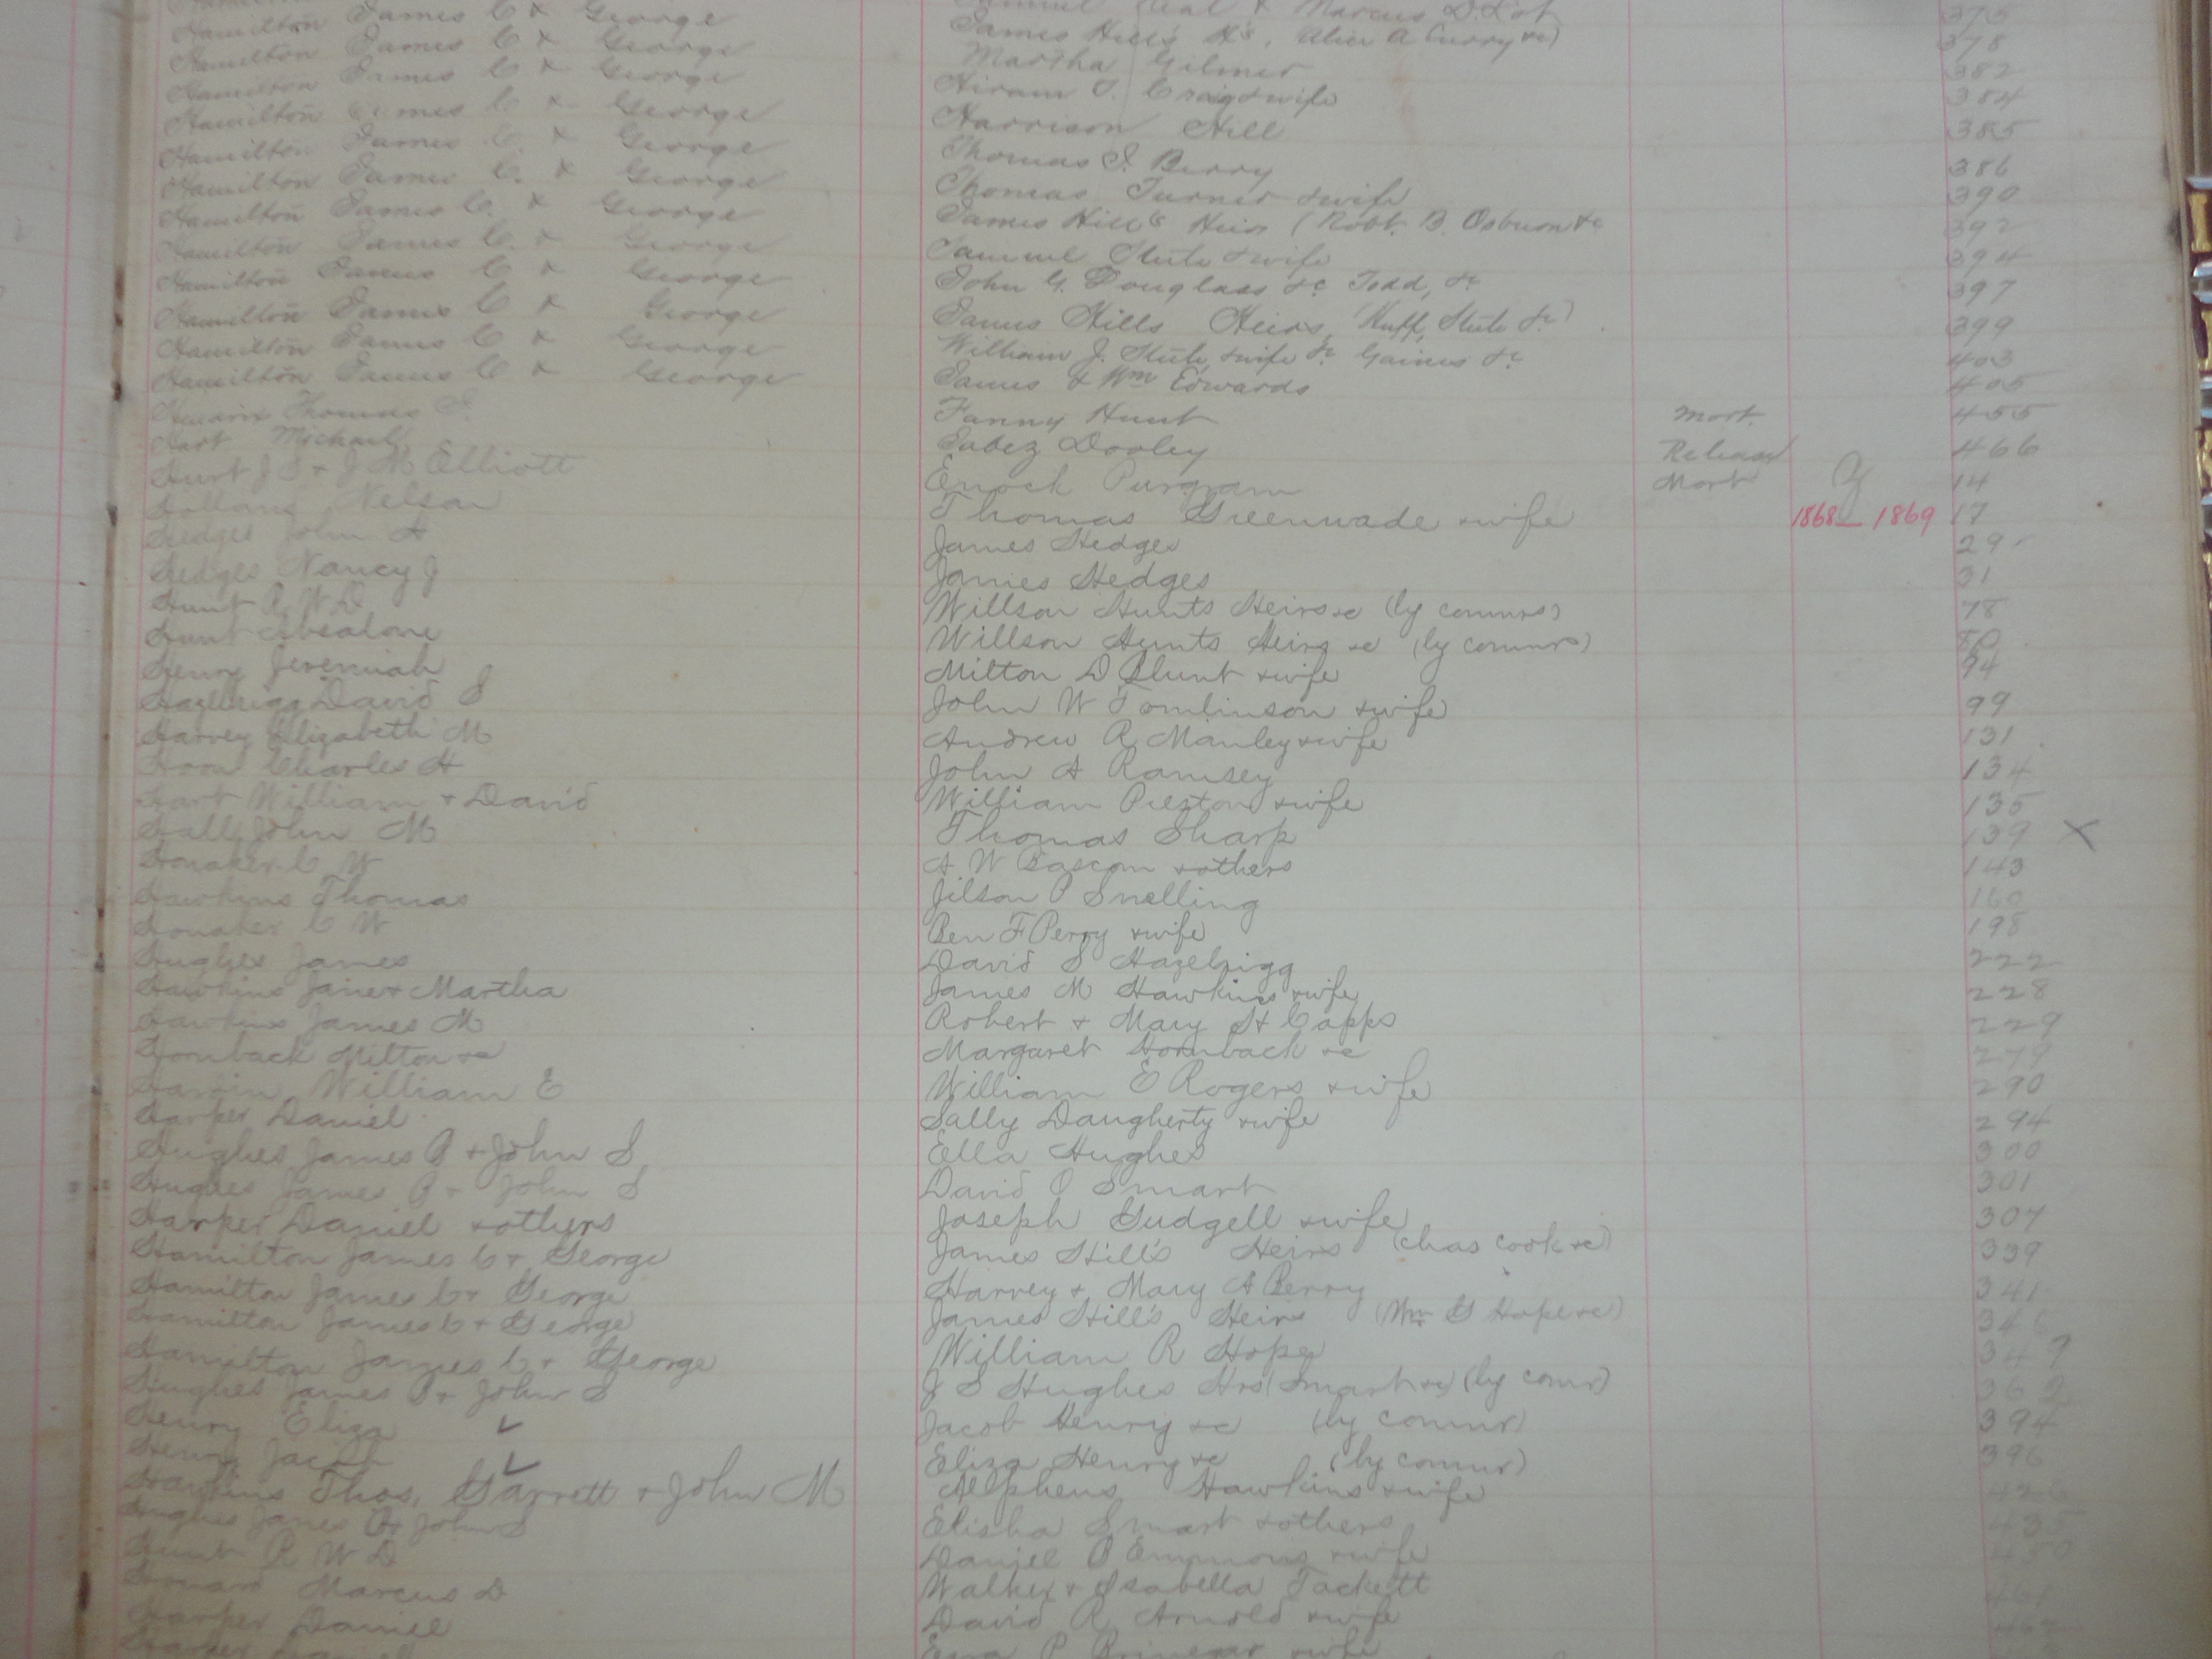 Hamilton James C & George Samuel & Marcus D. 375
Hamilton James C & George James Hill's Hs, Alice A Curry &c) 378
Hamilton James C & George Martha Gilmer 382
Hamilton James C & George Hiram T. Craig & wife 384
Hamilton James C. & George Harrison Hill 385
Hamilton James C. & George Thomas S. Berry 386
Hamilton James C. & George Thomas Turner & wife 390
Hamilton James C. & George James Hill's Heirs (Robt. B. Osburn &c 392
Hamilton James C & George Samuel Stute & wife 394
Hamilton James C & George John G. Douglass &c Todd, &c 397
Hamilton James C & George James Hills Heirs, Huff, Stute &c) 399
Hamilton James C & George William J. Stute, wife &c Gaines &c 403
James & Wm Edwards 405
Thomas Fanny Hunt Mort. 455
Hart Michael Jabez Dooley Release 466
Hurt J S & J M Elliott Enoch Purgram Mort 14
Nelson Thomas Greenwade & wife 1868 — 1869 17
Hedges John A James Hedges 29
Hedges Nancy J James Hedges 31
Hunt R W D Willson Hunts Heirs &c (by commrs) 78
Hunt Absalone Willson Hunts Heirs &c (by commrs) 80
Henry Jeremiah Milton D Blunt & wife 94
Hazelrigg David S John W Tomlinson & wife 99
Harvey Elizabeth M Andrew R Manley & wife 131
Charles H John A Ramsey 134
Hart William & David William Preston & wife 135
Hall John M Thomas Sharp 139 X
Honaker C W A W Bascom & others 143
Hawkins Thomas Jilson P Snelling 160
Honaker C W Ben F Perry & wife 198
Hughes James David S Hazelrigg 222
Hawkins Jane & Martha James M Hawkins & wife 228
Hawkins James M Robert & Mary H Capps 229
Hornback Milton &c Margaret Hornback &c 279
William E William E Rogers & wife 290
Harper Daniel Sally Daugherty & wife 294
Hughes James P & John S Ella Hughes 300
Hughes James P & John S David O Smart 301
Harper Daniel & others Joseph Gudgell & wife 307
Hamilton James C & George James Hill's Heirs (Chas Cook &c) 339
Hamilton James C & George Harvey & Mary A Berry 341
Hamilton James C & George James Hill's Heirs (Wm G Hope &c) 346
Hamilton James C & George William R Hope 349
Hughes James P & John S J S Hughes Hrs (Smart &c) (by comr)
Henry Eliza ✓ Jacob Henry &c (by commr) 394
Henry Jacob ✓ Eliza Henry &c (by commr) 396
Hawkins Thos, Garrett & John M Alpheus Hawkins & wife 426
Hughes James P & John S Elisha Smart & others 435
Hunt R W D Daniel P Emmons & wife 450
Howard Marcus D Walker & Isabella Tackett 461
Harper Daniel David R Arnold & wife
Harper Daniel Ezra P & wife